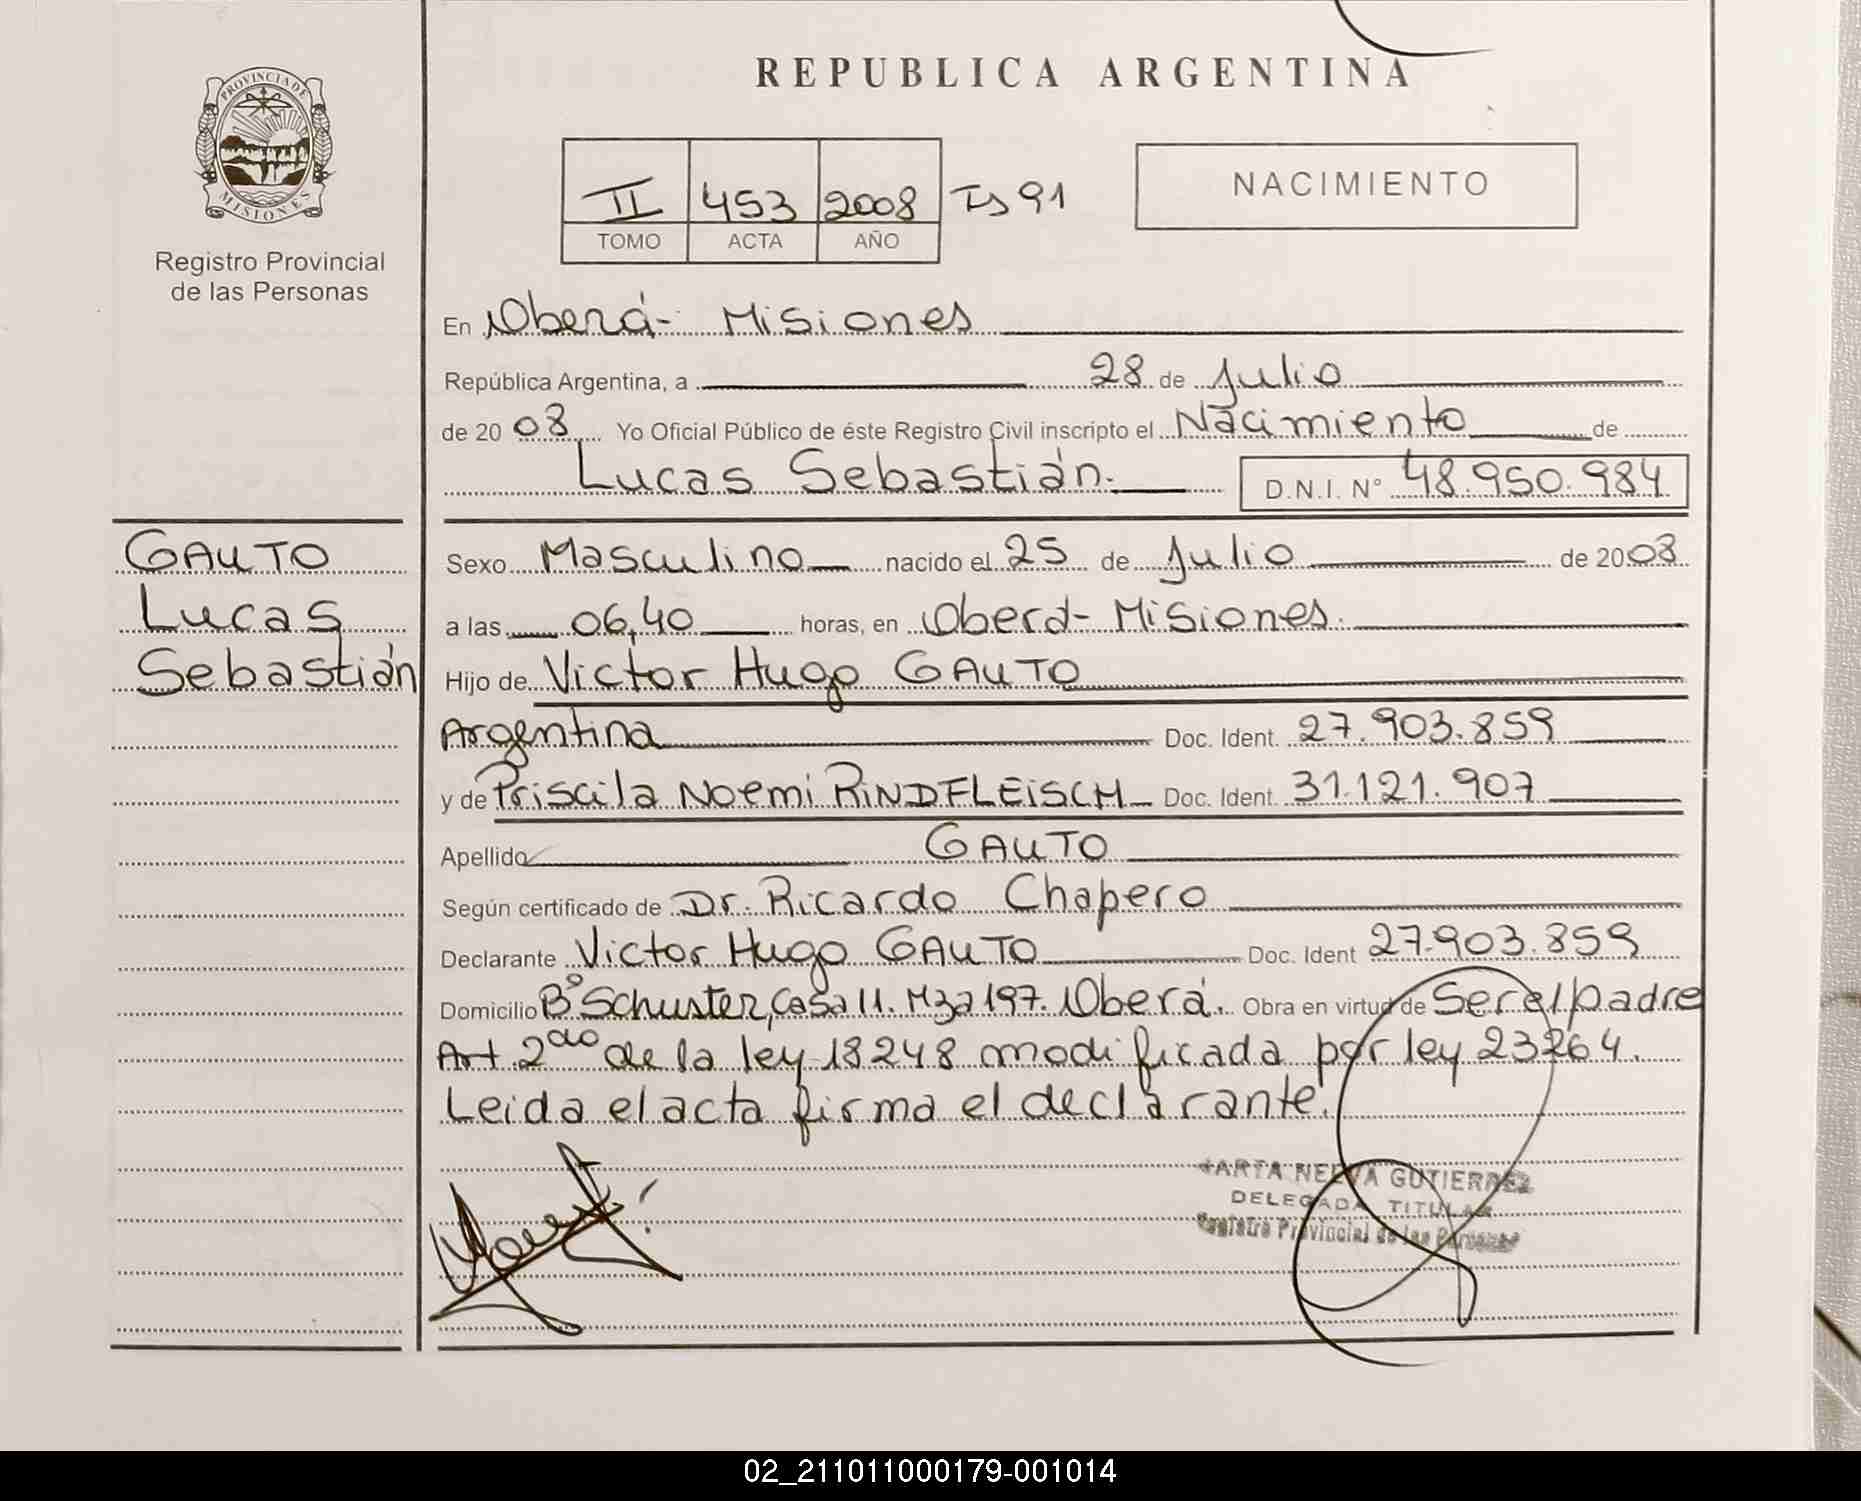 REPUBLICA ARGENTINA
PROVINCIA DE
MISIONES
Registro Provincial
de las Personas
II 453 2008 Fs 91
TOMO ACTA AÑO
NACIMIENTO
En Oberá - Misiones
República Argentina, a 28 de Julio
de 2008 Yo Oficial Público de éste Registro Civil inscripto el Nacimiento de
Lucas Sebastián. D.N.I. N° 48.950.984
GAUTO
Lucas
Sebastián
Sexo Masculino nacido el 25 de Julio de 2008
a las 06,40 horas, en Oberá - Misiones.
Hijo de Victor Hugo GAUTO
Argentina Doc. Ident. 27.903.859
y de Priscila Noemi RINDFLEISCH Doc. Ident. 31.121.907
Apellido GAUTO
Según certificado de Dr. Ricardo Chapero
Declarante Victor Hugo GAUTO Doc. Ident 27.903.859
Domicilio B° Schuster, Casa 11. Mza 197. Oberá. Obra en virtud de Ser el padre
Art. 2do de la ley 18248 modificada por ley 23264.
Leida el acta firma el declarante.
MARTA NELVA GUTIERREZ
DELEGADA TITULAR
Registro Provincial de las Personas
02_211011000179-001014